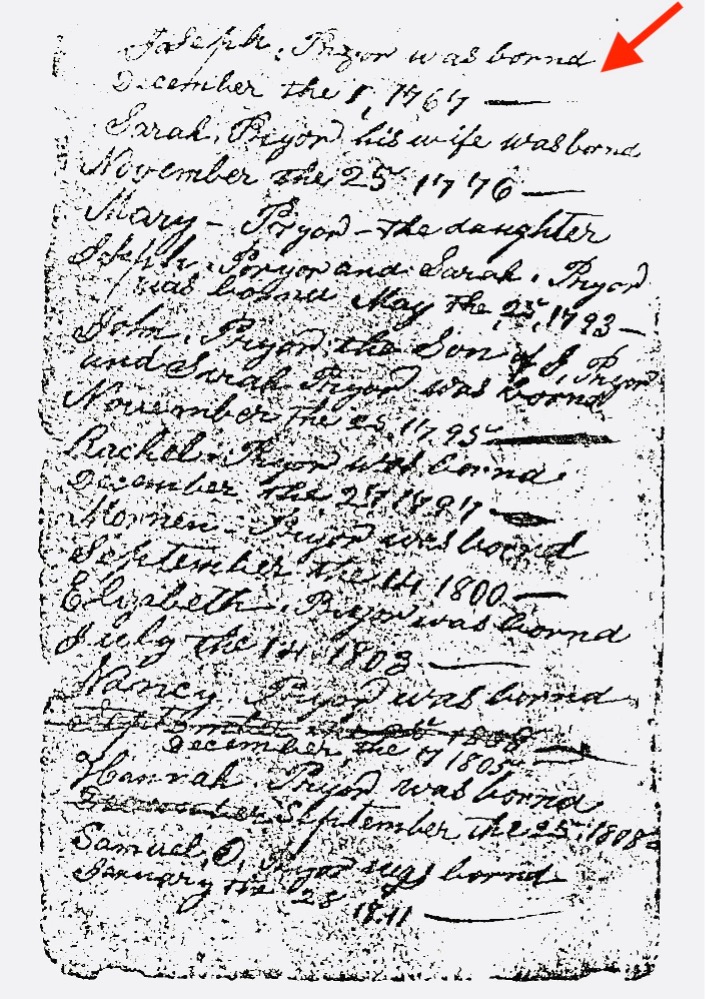 Joseph. Pryor was bornd
December the 1, 1767
Sarah. Pryor his wife was bornd
November the 25 1776
Mary - Pryor - the daughter
Joseph. Pryor and Sarah. Pryor
was bornd May the 25, 1793
John. Pryor the Son of J. Pryor
and Sarah Pryor was bornd
November the 25, 1795
Rachel. Pryor was bornd
December the 27 1797
Pryor was bornd
September the 14 1800
Elizabeth. Pryor was bornd
July the 14 1803
Nancy. Pryor was bornd
September 1808
December the 17 1805
Hannah Pryor was bornd
September the 25, 1808
Samuel, D, Pryor was bornd
January the 23
1811